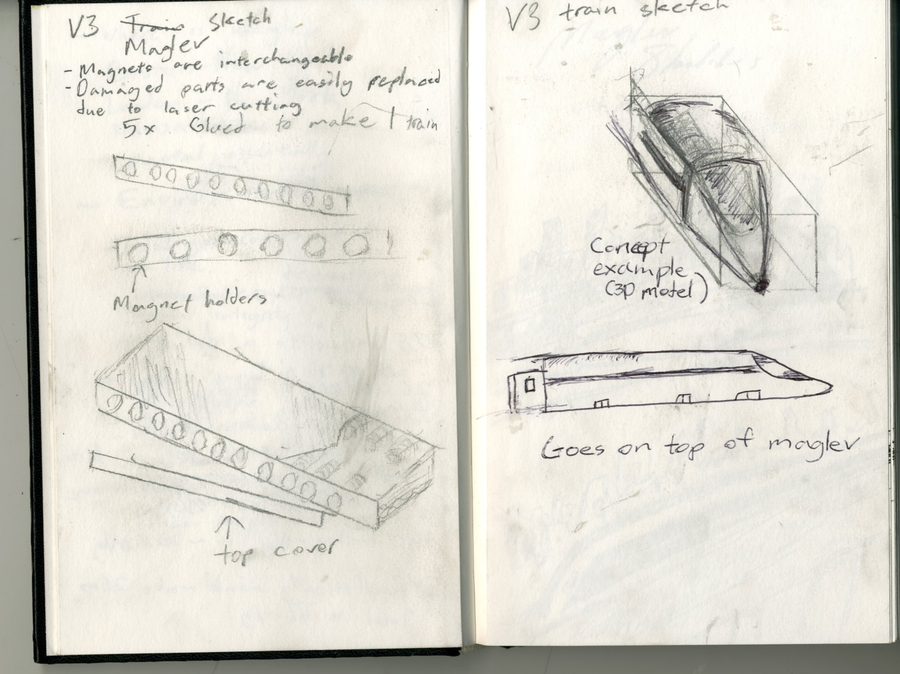 V3 Train Sketch
Maglev
- Magnets are interchangeable
- Damaged parts are easily replaced
due to laser cutting
5x Glued to make 1 train
Magnet holders
top cover
V3 train sketch
Concept
example
(3D model)
Goes on top of maglev